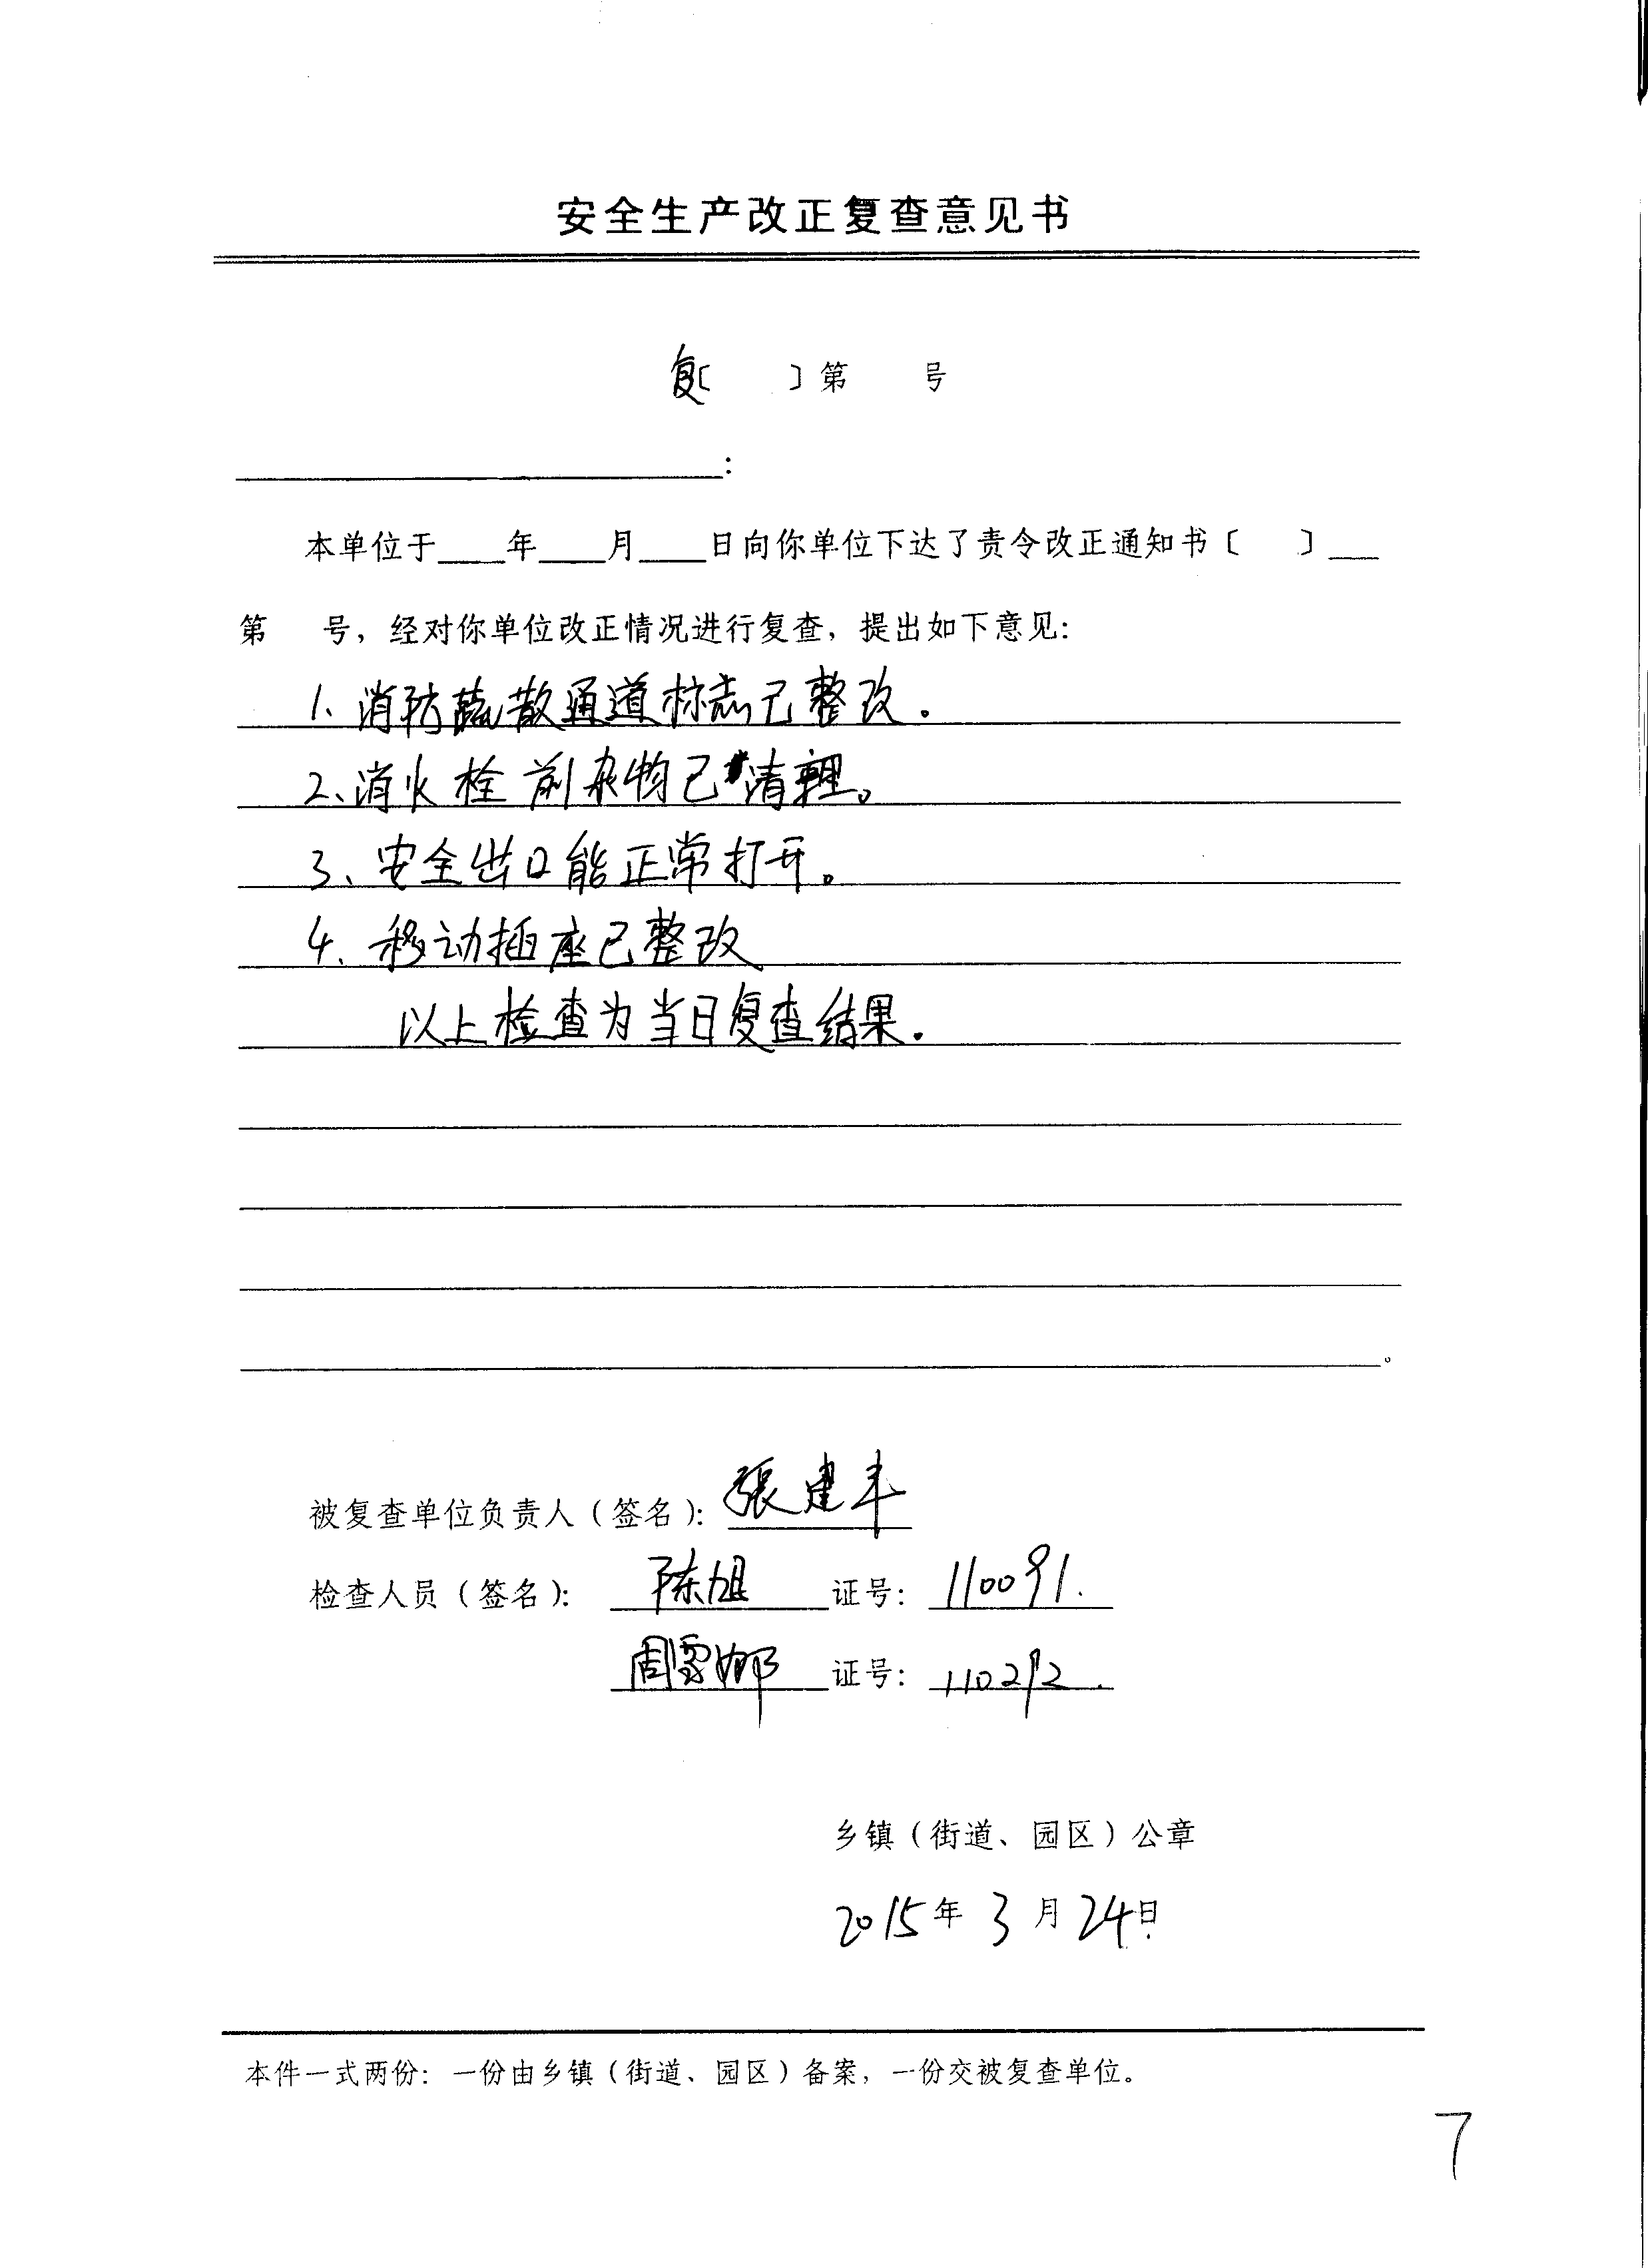 安全生产改正复查意见书
复〔 〕第 号
:
本单位于____年____月____日向你单位下达了责令改正通知书〔 〕___
第 号，经对你单位改正情况进行复查，提出如下意见：
1、消防疏散通道标志已整改.
2、消火栓前杂物已清理。
3、安全出口能正常打开。
4、移动插座已整改
以上检查为当日复查结果.
被复查单位负责人（签名）：張建丰
检查人员（签名）：陈旭 证号：110091.
周雪娜 证号：110292.
乡镇（街道、园区）公章
2015年3月24日
本件一式两份：一份由乡镇（街道、园区）备案，一份交被复查单位。
7